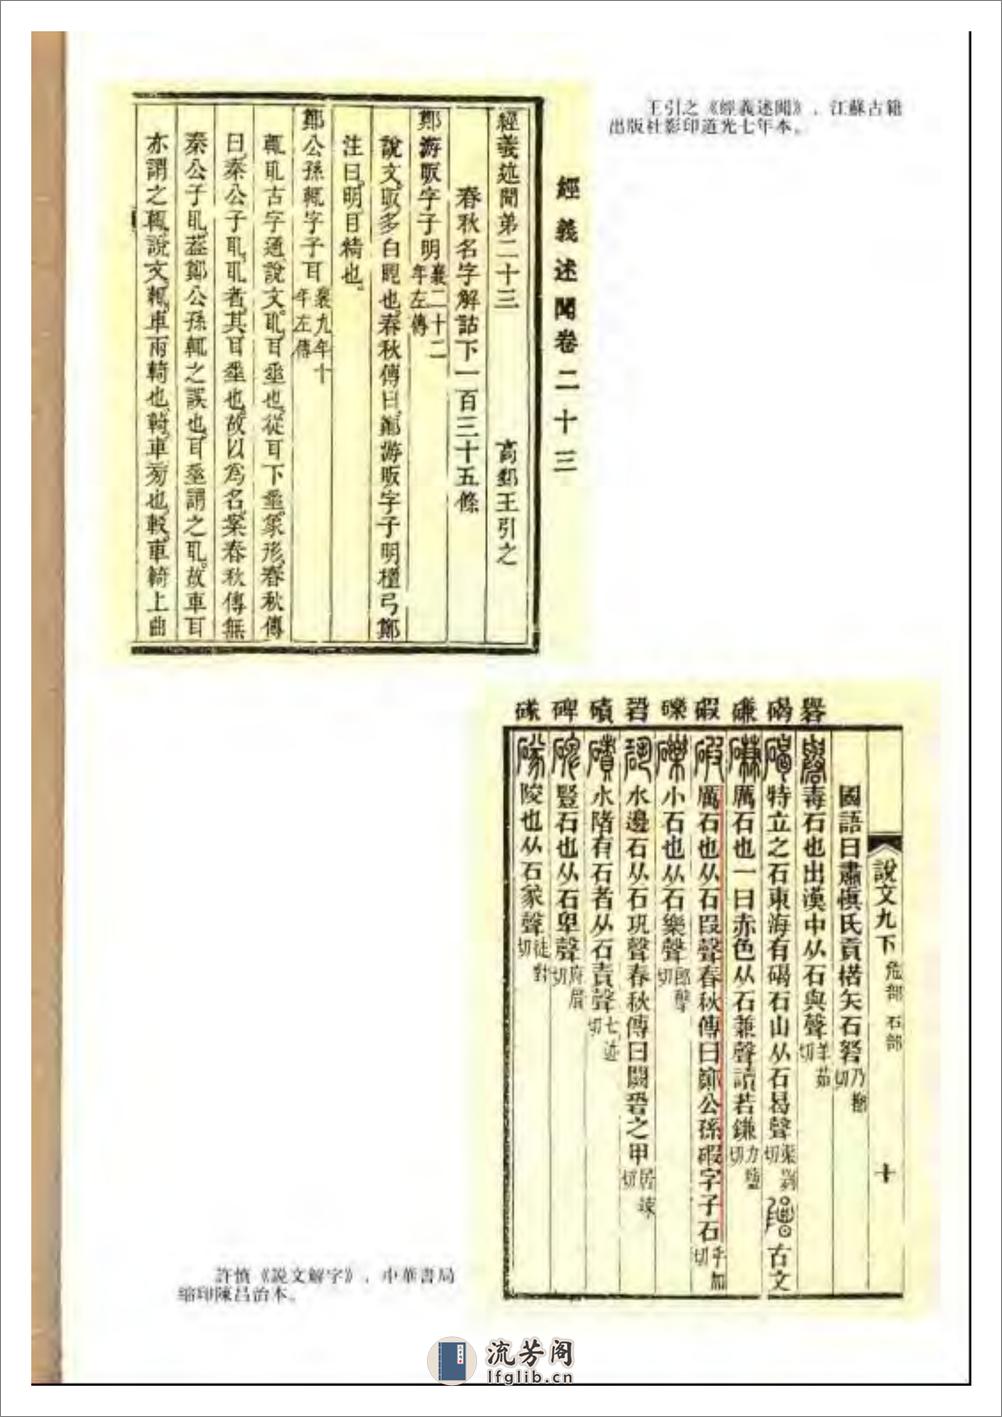 王引之《經義述聞》，江蘇古籍
出版社影印道光七年本。
經義述聞卷二十三
經義述聞弟二十三　高郵王引之
春秋名字解詁下一百三十五條
鄭游販字子明襄二十二年左傳
說文販多白眼也春秋傳曰鄭游販字子明檀弓鄭
注曰明目精也
鄭公孫輒字子耳襄九年十年左傳
輒耴古字通說文耴耳垂也從耳下垂象形春秋傳
曰秦公子耴耴者其耳垂也故以為名案春秋傳無
秦公子耴蓋鄭公孫輒之誤也耳垂謂之耴故車耳
亦謂之輒說文輒車兩輢也輢車旁也較車輢上曲
說文九下　危部　石部　十
國語曰肅愼氏貢楛矢石砮乃都切
礜　毒石也出漢中从石與聲羊茹切
碣　特立之石東海有碣石山从石曷聲渠列切　古文
磏　厲石也一曰赤色从石兼聲讀若鎌力鹽切
碬　厲石也从石叚聲春秋傳曰鄭公孫碬字子石乎加切
礫　小石也从石樂聲郎擊切
碧　水邊石从石巩聲春秋傳曰闕碧之甲居竦切
磧　水陼有石者从石責聲七迹切
碑　豎石也从石卑聲府眉切
䃍　陵也从石㒸聲徒對切
許慎《説文解字》，中華書局
縮印陳昌治本。
流芳阁
lfglib.cn